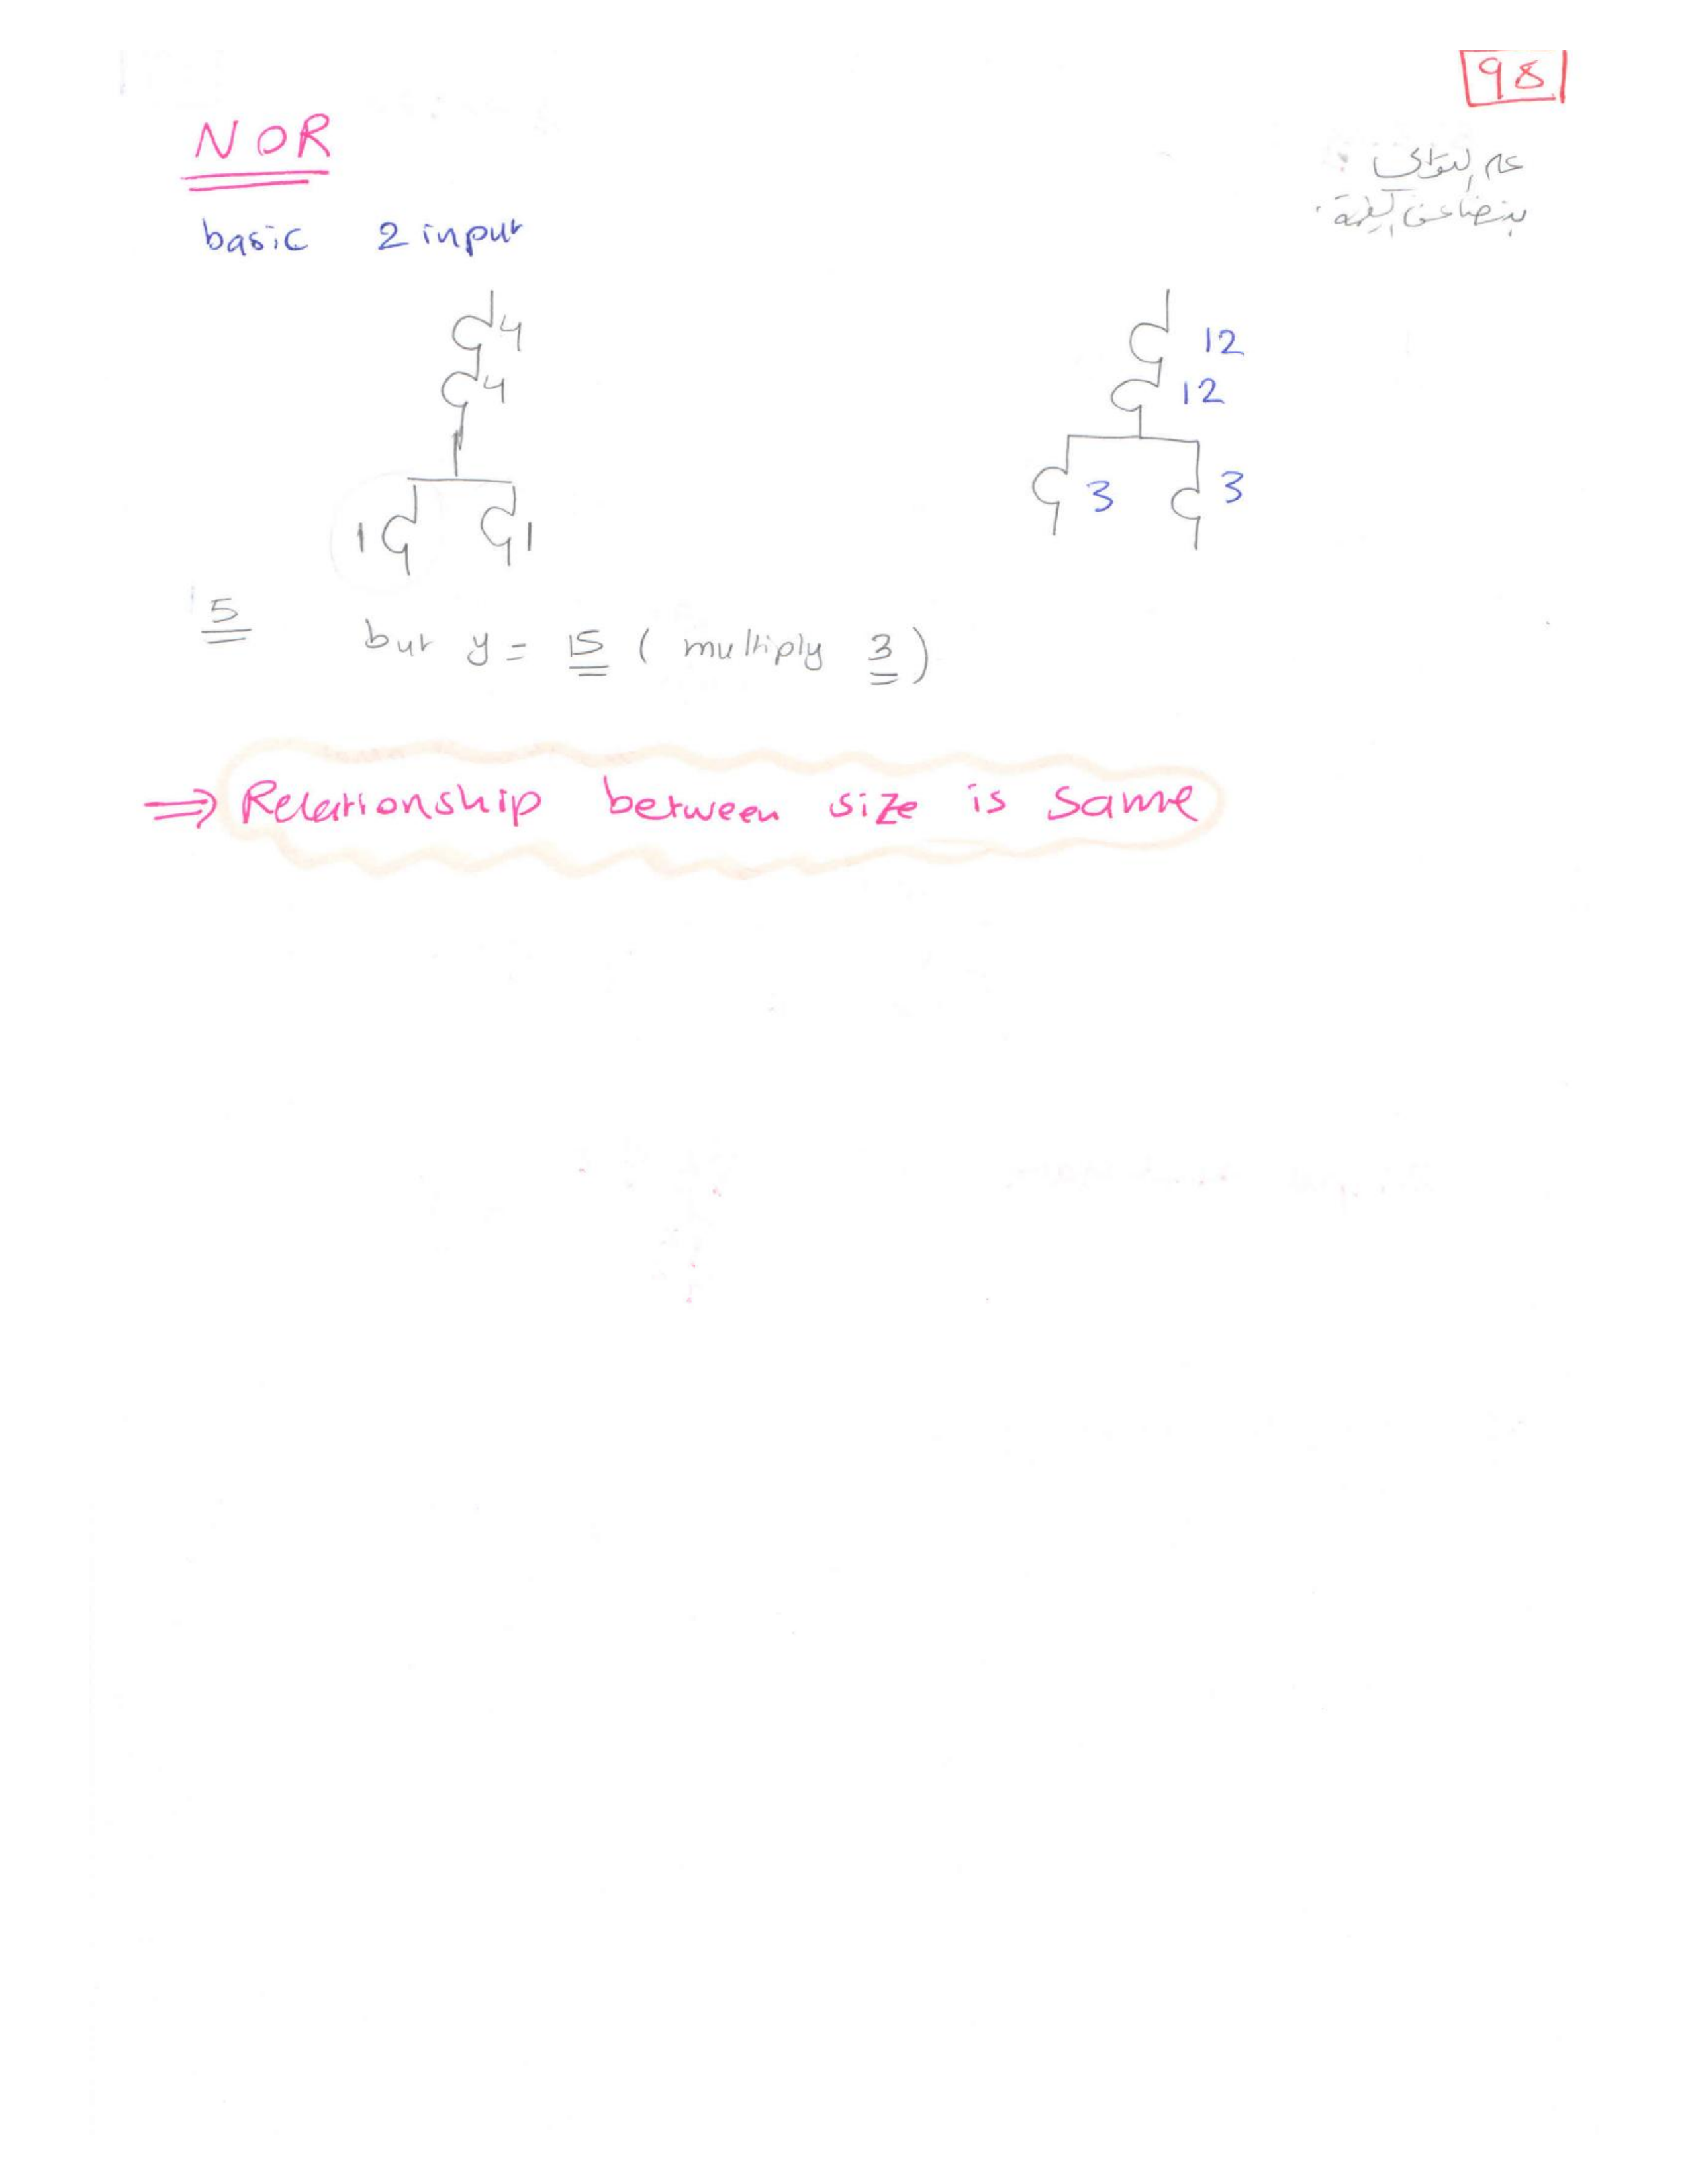 98
NOR
عام التوالى
بنضاعف القيمة
basic 2 input
4
4
1 1
12
12
3 3
5 but y = 15 ( multiply 3 )
⇒ Relationship between size is same